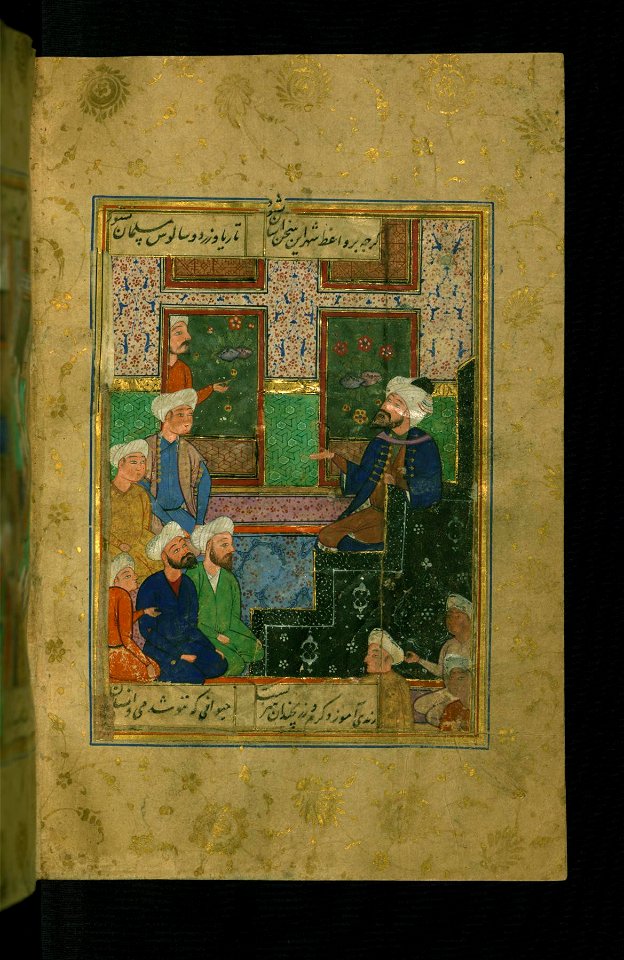 گرچه بر واعظ شهر این سخن آسان نشود
تا ریا ورزد و سالوس مسلمان نشود
رندی آموز و کرم نه چندان هنرست
حیوانی که ننوشد می و انسان